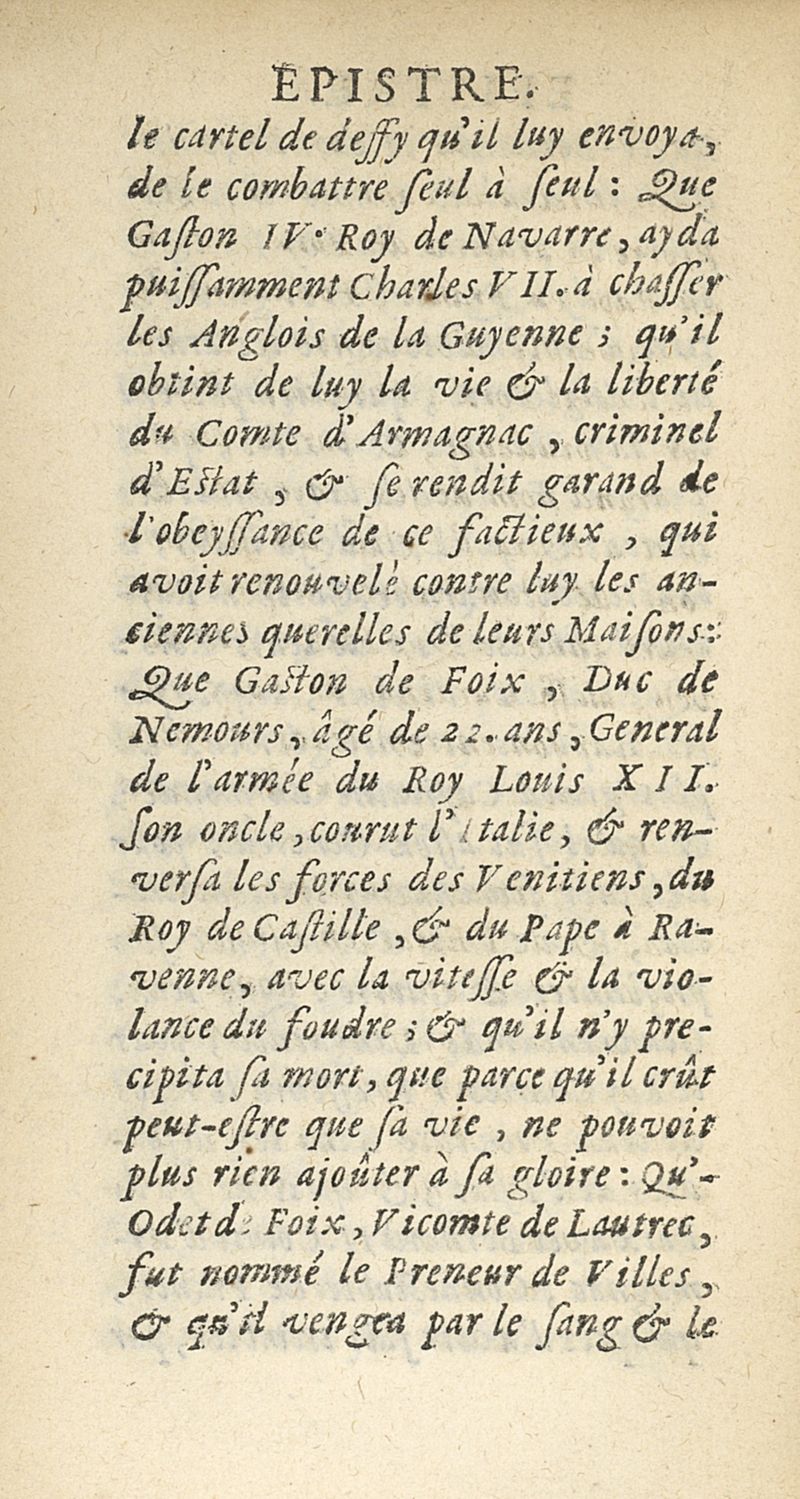 EPISTRE.
le cartel de deffy qu'il luy envoya,
de le combattre ſeul à ſeul : Que
Gaſton IV. Roy de Navarre, ayda
puiſſamment Charles VII. à chaſſer
les Anglois de la Guyenne ; qu'il
obtint de luy la vie & la liberté
du Comte d'Armagnac, criminel
d'Eſtat, & ſe rendit garand de
l'obeyſſance de ce factieux, qui
avoit renouvelé contre luy les an-
ciennes querelles de leurs Maiſons :
Que Gaſton de Foix, Duc de
Nemours, âgé de 22. ans, General
de l'armée du Roy Louis XII.
ſon oncle, courut l'Italie, & ren-
verſa les forces des Venitiens, du
Roy de Caſtille, & du Pape à Ra-
venne, avec la viteſſe & la vio-
lance du foudre ; & qu'il n'y pre-
cipita ſa mort, que parce qu'il crût
peut-eſtre que ſa vie, ne pouvoit
plus rien ajoûter à ſa gloire : Qu'-
Odet de Foix, Vicomte de Lautrec,
fut nommé le Preneur de Villes,
& qu'il vengea par le ſang & le